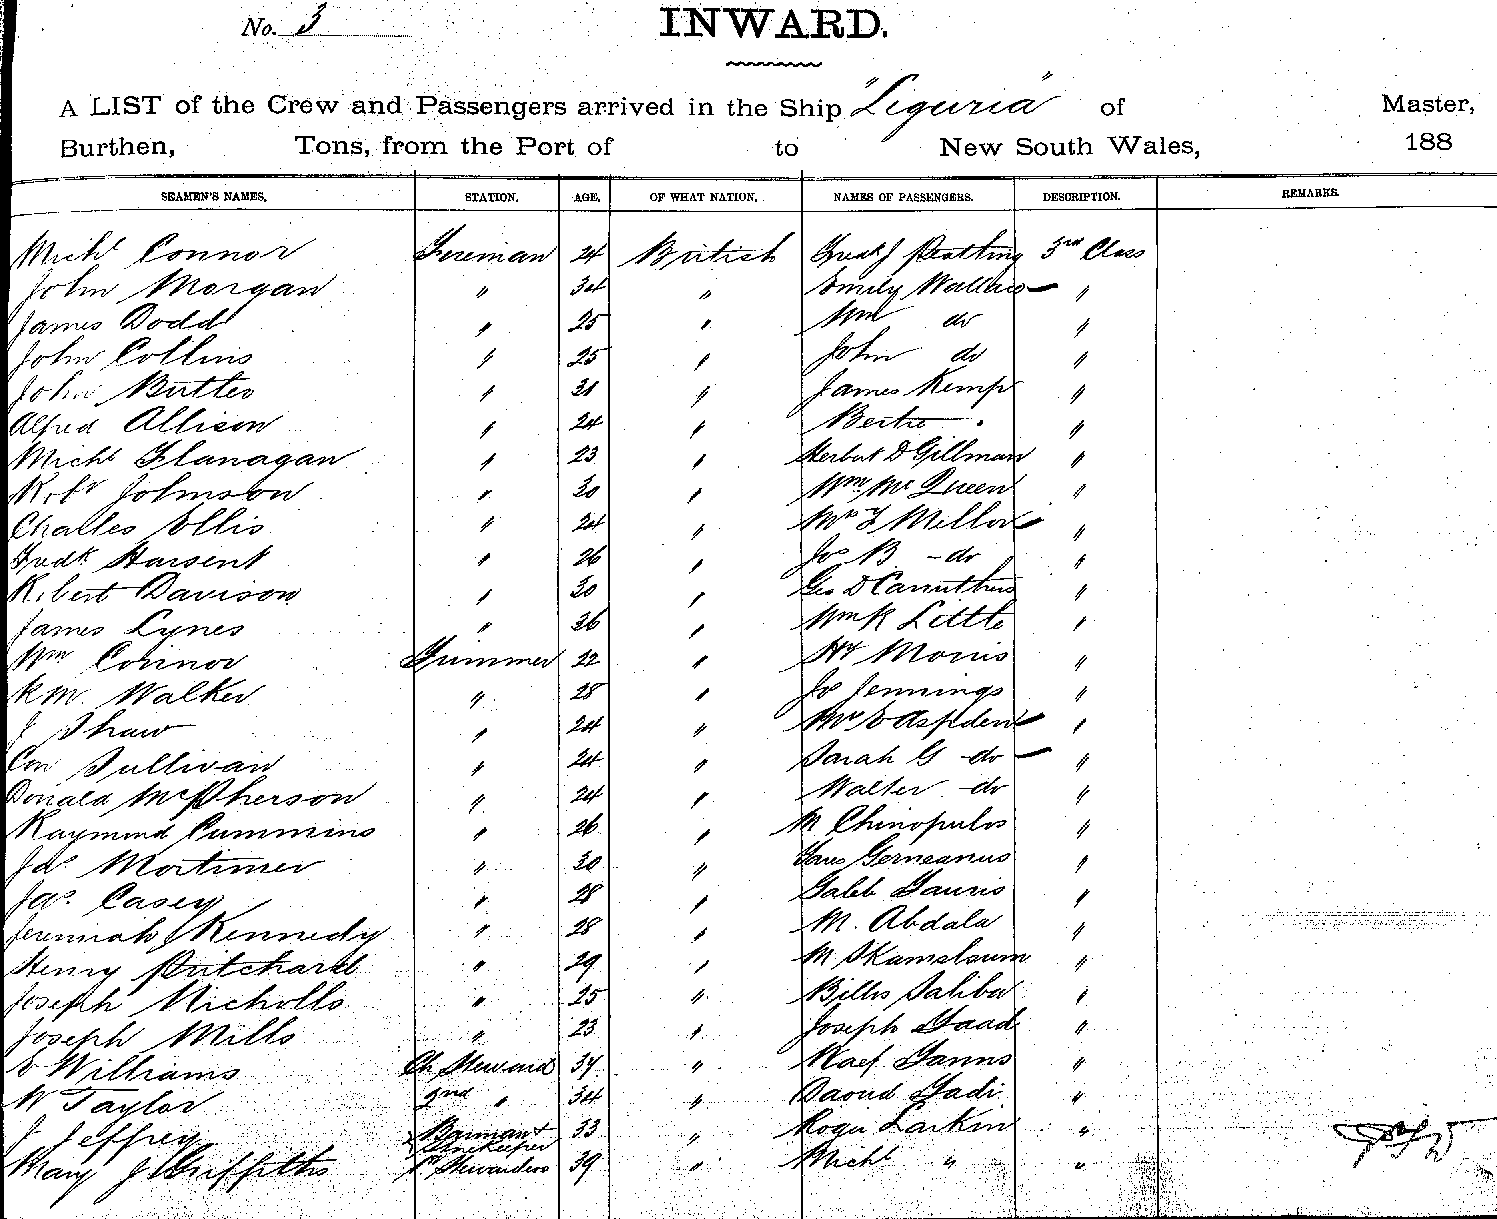 No. 3
INWARD.
A LIST of the Crew and Passengers arrived in the Ship "Liguria" of Master,
Burthen, Tons, from the Port of to New South Wales, 188
SEAMEN'S NAMES. STATION. AGE. OF WHAT NATION. NAMES OF PASSENGERS. DESCRIPTION. REMARKS.
Michl Connor Fireman 24 British Fredk J 3rd Class
John Morgan " 34 " Emily Wallis "
James Dodd " 25 " Wm do "
John Collins " 25 " John do "
John Butler " 31 " James Kemp "
Alfred Allison " 24 " "
Michl Flanagan " 23 " Herbert D Gillman "
Robt Johnson " 30 " Wm McQueen "
Charles Ellis " 24 " Mrs Mellor "
Fredk Harsent " 26 " Jos B - do "
Robert Davison " 30 " Geo D Carruthers "
James Lynes " 36 " Wm R Little "
Wm Connor Trimmer 22 " Hy Morris "
R M. Walker " 28 " Jos Jennings "
J Shaw " 24 " Mr E Aspden "
Con Sullivan " 24 " Sarah G - do "
Donald McPherson " 24 " Walter - do "
Raymond Cummins " 26 " M Chinopulos "
Jas Mortimer " 30 " "
Jas. Casey " 28 " "
Jeremiah Kennedy " 28 " M. Abdala "
Henry Pritchard " 29 " M "
Joseph Nicholls " 25 " "
Joseph Mills " 23 " Joseph "
E Williams Ch Steward 37 " "
W Taylor 2nd " 34 " Daoud "
J Jeffrey Barman & Storekeeper 33 " Roger Larkin "
Mary J Griffiths Stewardess 39 " Michl " "